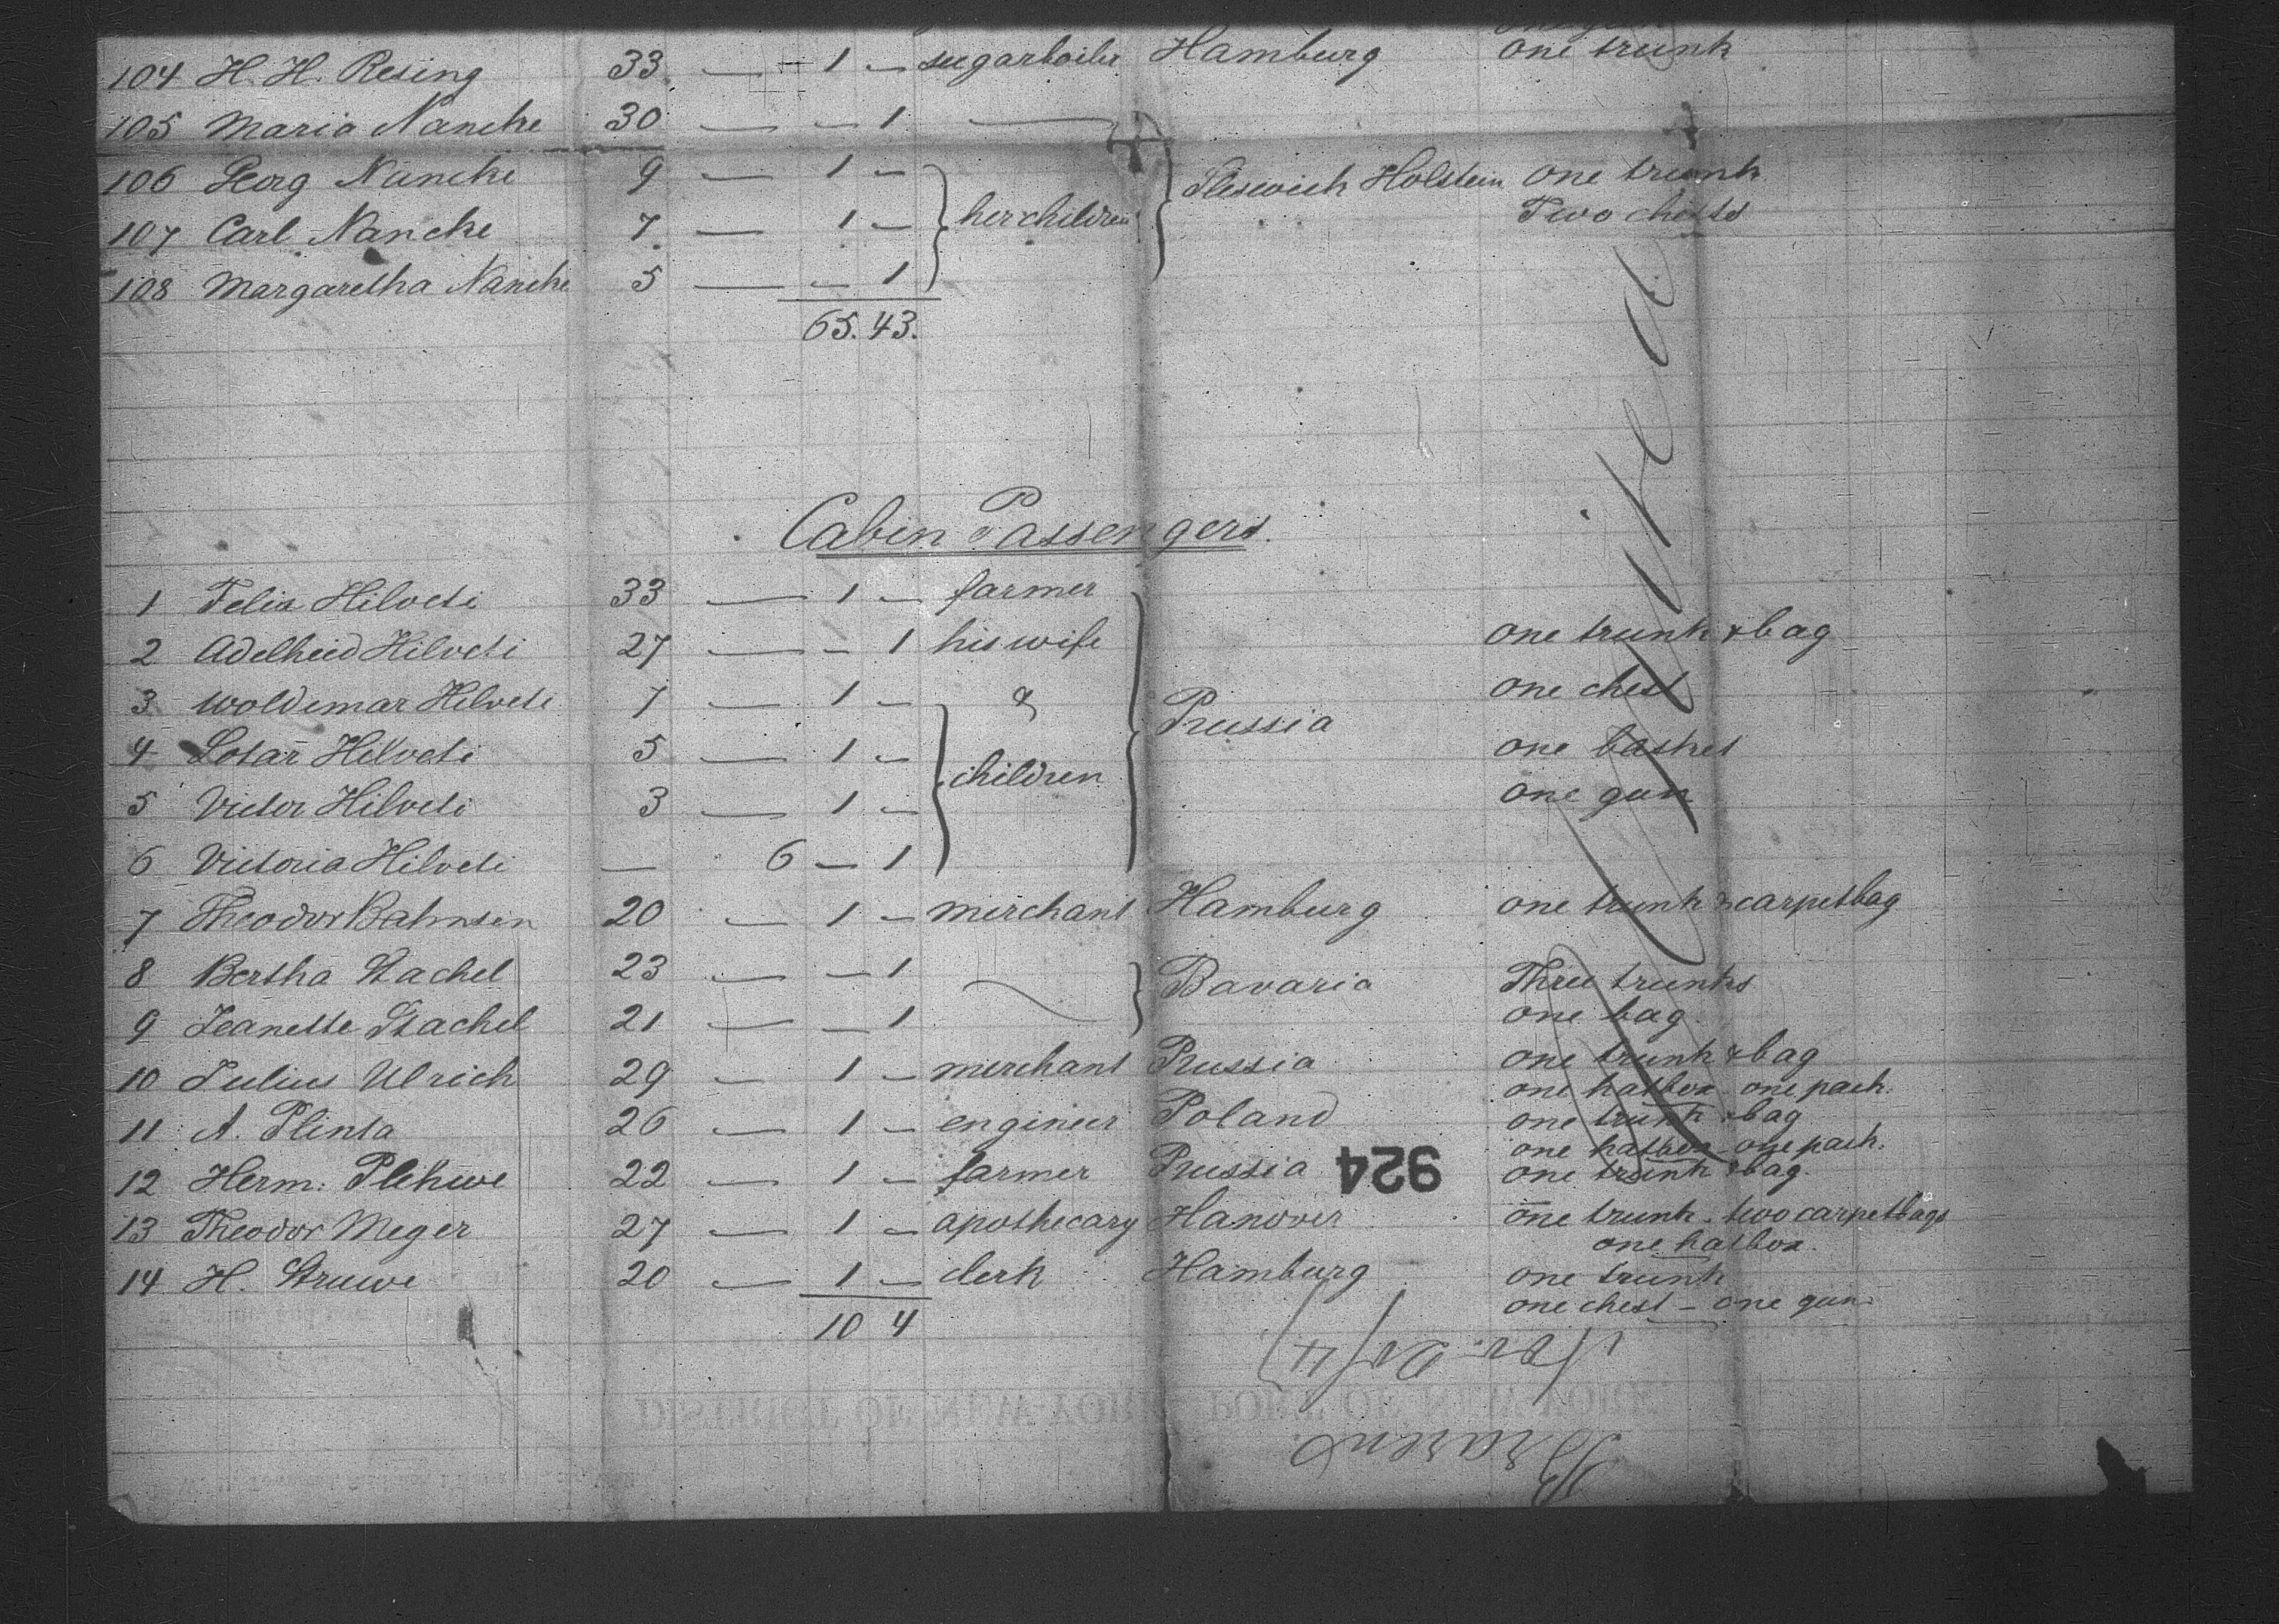 104 H. H. Resing 33 — 1 — sugarboiler Hamburg one trunk
105 Maria Nancke 30 — — 1 —
106 Georg Nancke 9 — 1 —
107 Carl Nancke 7 — 1 — her children Sleswich Holstein one trunk
Two chests
108 Margaretha Nancke 5 — — 1
65. 43.
Cabin Passengers.
1 Felix Hilveti 33 — 1 — farmer
2 Adelheid Hilveti 27 — — 1 his wife one trunk & bag
3 Woldemar Hilveti 7 — 1 — & Prussia one chest
4 Lotar Hilveti 5 — 1 — children one basket
5 Victor Hilveti 3 — 1 — one gun
6 Victoria Hilveti — 6 — 1
7 Theodor Bahnsen 20 — 1 — merchant Hamburg one trunk & carpetbag
8 Bertha Stachel 23 — — 1 Bavaria Three trunks
9 Jeanette Stachel 21 — — 1 one bag
10 Julius Ulrich 29 — 1 — merchant Prussia one trunk & bag
one hatbox one pack.
11 A. Plinta 26 — 1 — engineer Poland one trunk & bag
one hatbox – one pack.
12 Herm: Plehwe 22 — 1 — farmer Prussia one trunk & bag.
924
13 Theodor Meger 27 — 1 — apothecary Hanover one trunk – two carpetbags
one hatbox.
14 H. Struwe 20 — 1 — clerk Hamburg one trunk
one chest – one gun
10 4
DISTRICT OF NEW-YORK PORT OF NEW-YORK